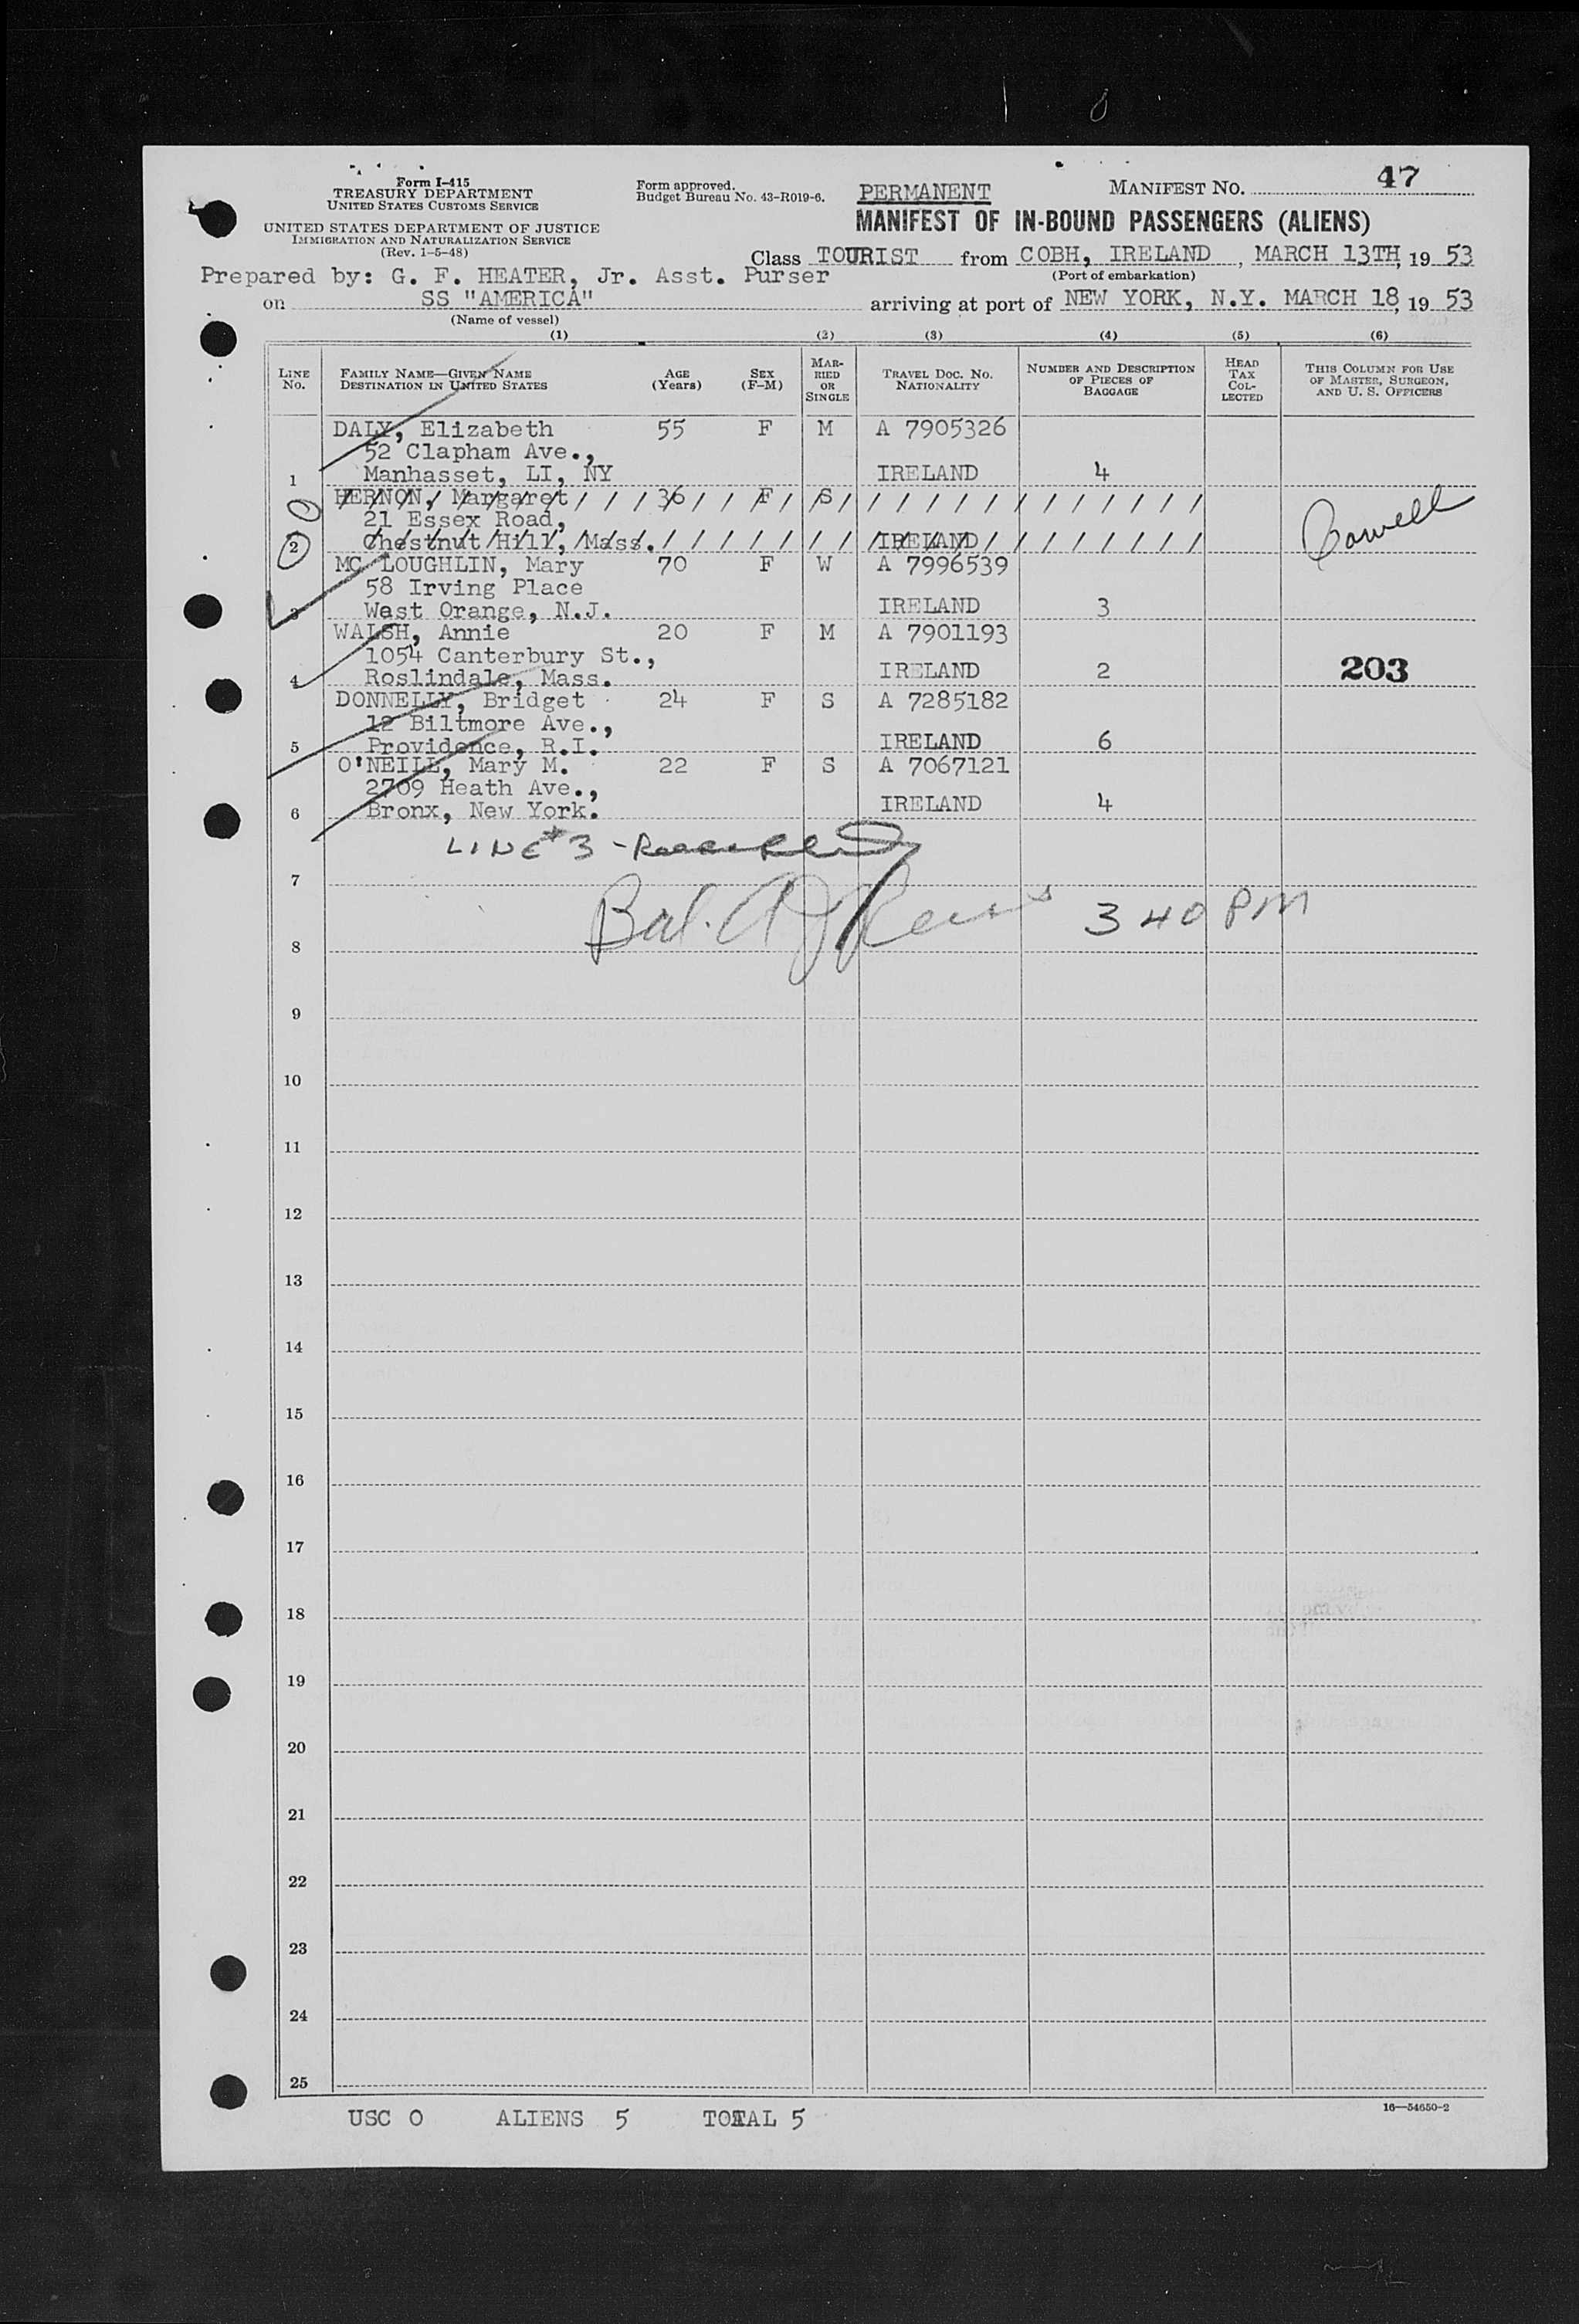 Form I-415
TREASURY DEPARTMENT
UNITED STATES CUSTOMS SERVICE
UNITED STATES DEPARTMENT OF JUSTICE
IMMIGRATION AND NATURALIZATION SERVICE
(Rev. 1-5-48)
Form approved.
Budget Bureau No. 43-R019-6.
PERMANENT
MANIFEST NO. 47
MANIFEST OF IN-BOUND PASSENGERS (ALIENS)
Class TOURIST from COBH, IRELAND, MARCH 13TH, 19 53
(Port of embarkation)
Prepared by: G. F. HEATER, Jr. Asst. Purser
on SS "AMERICA" arriving at port of NEW YORK, N.Y. MARCH 18, 19 53
(Name of vessel)
(1) (2) (3) (4) (5) (6)
LINE No. FAMILY NAME—GIVEN NAME DESTINATION IN UNITED STATES AGE (Years) SEX (F-M) MARRIED OR SINGLE TRAVEL DOC. NO. NATIONALITY NUMBER AND DESCRIPTION OF PIECES OF BAGGAGE HEAD TAX COLLECTED THIS COLUMN FOR USE OF MASTER, SURGEON, AND U. S. OFFICERS
DALY, Elizabeth 55 F M A 7905326
52 Clapham Ave.,
1 Manhasset, LI, NY IRELAND 4
HERNON, Margaret 36 F S
21 Essex Road,
2 Chestnut Hill, Mass. IRELAND
MC LOUGHLIN, Mary 70 F W A 7996539
58 Irving Place
3 West Orange, N.J. IRELAND 3
WALSH, Annie 20 F M A 7901193
1054 Canterbury St.,
4 Roslindale, Mass. IRELAND 2 203
DONNELLY, Bridget 24 F S A 7285182
12 Biltmore Ave.,
5 Providence, R.I. IRELAND 6
O'NEILL, Mary M. 22 F S A 7067121
2709 Heath Ave.,
6 Bronx, New York. IRELAND 4
LINE #3 -
7
Bal. 3 40 PM
8
9
10
11
12
13
14
15
16
17
18
19
20
21
22
23
24
25
16—54650-2
USC 0 ALIENS 5 TOTAL 5